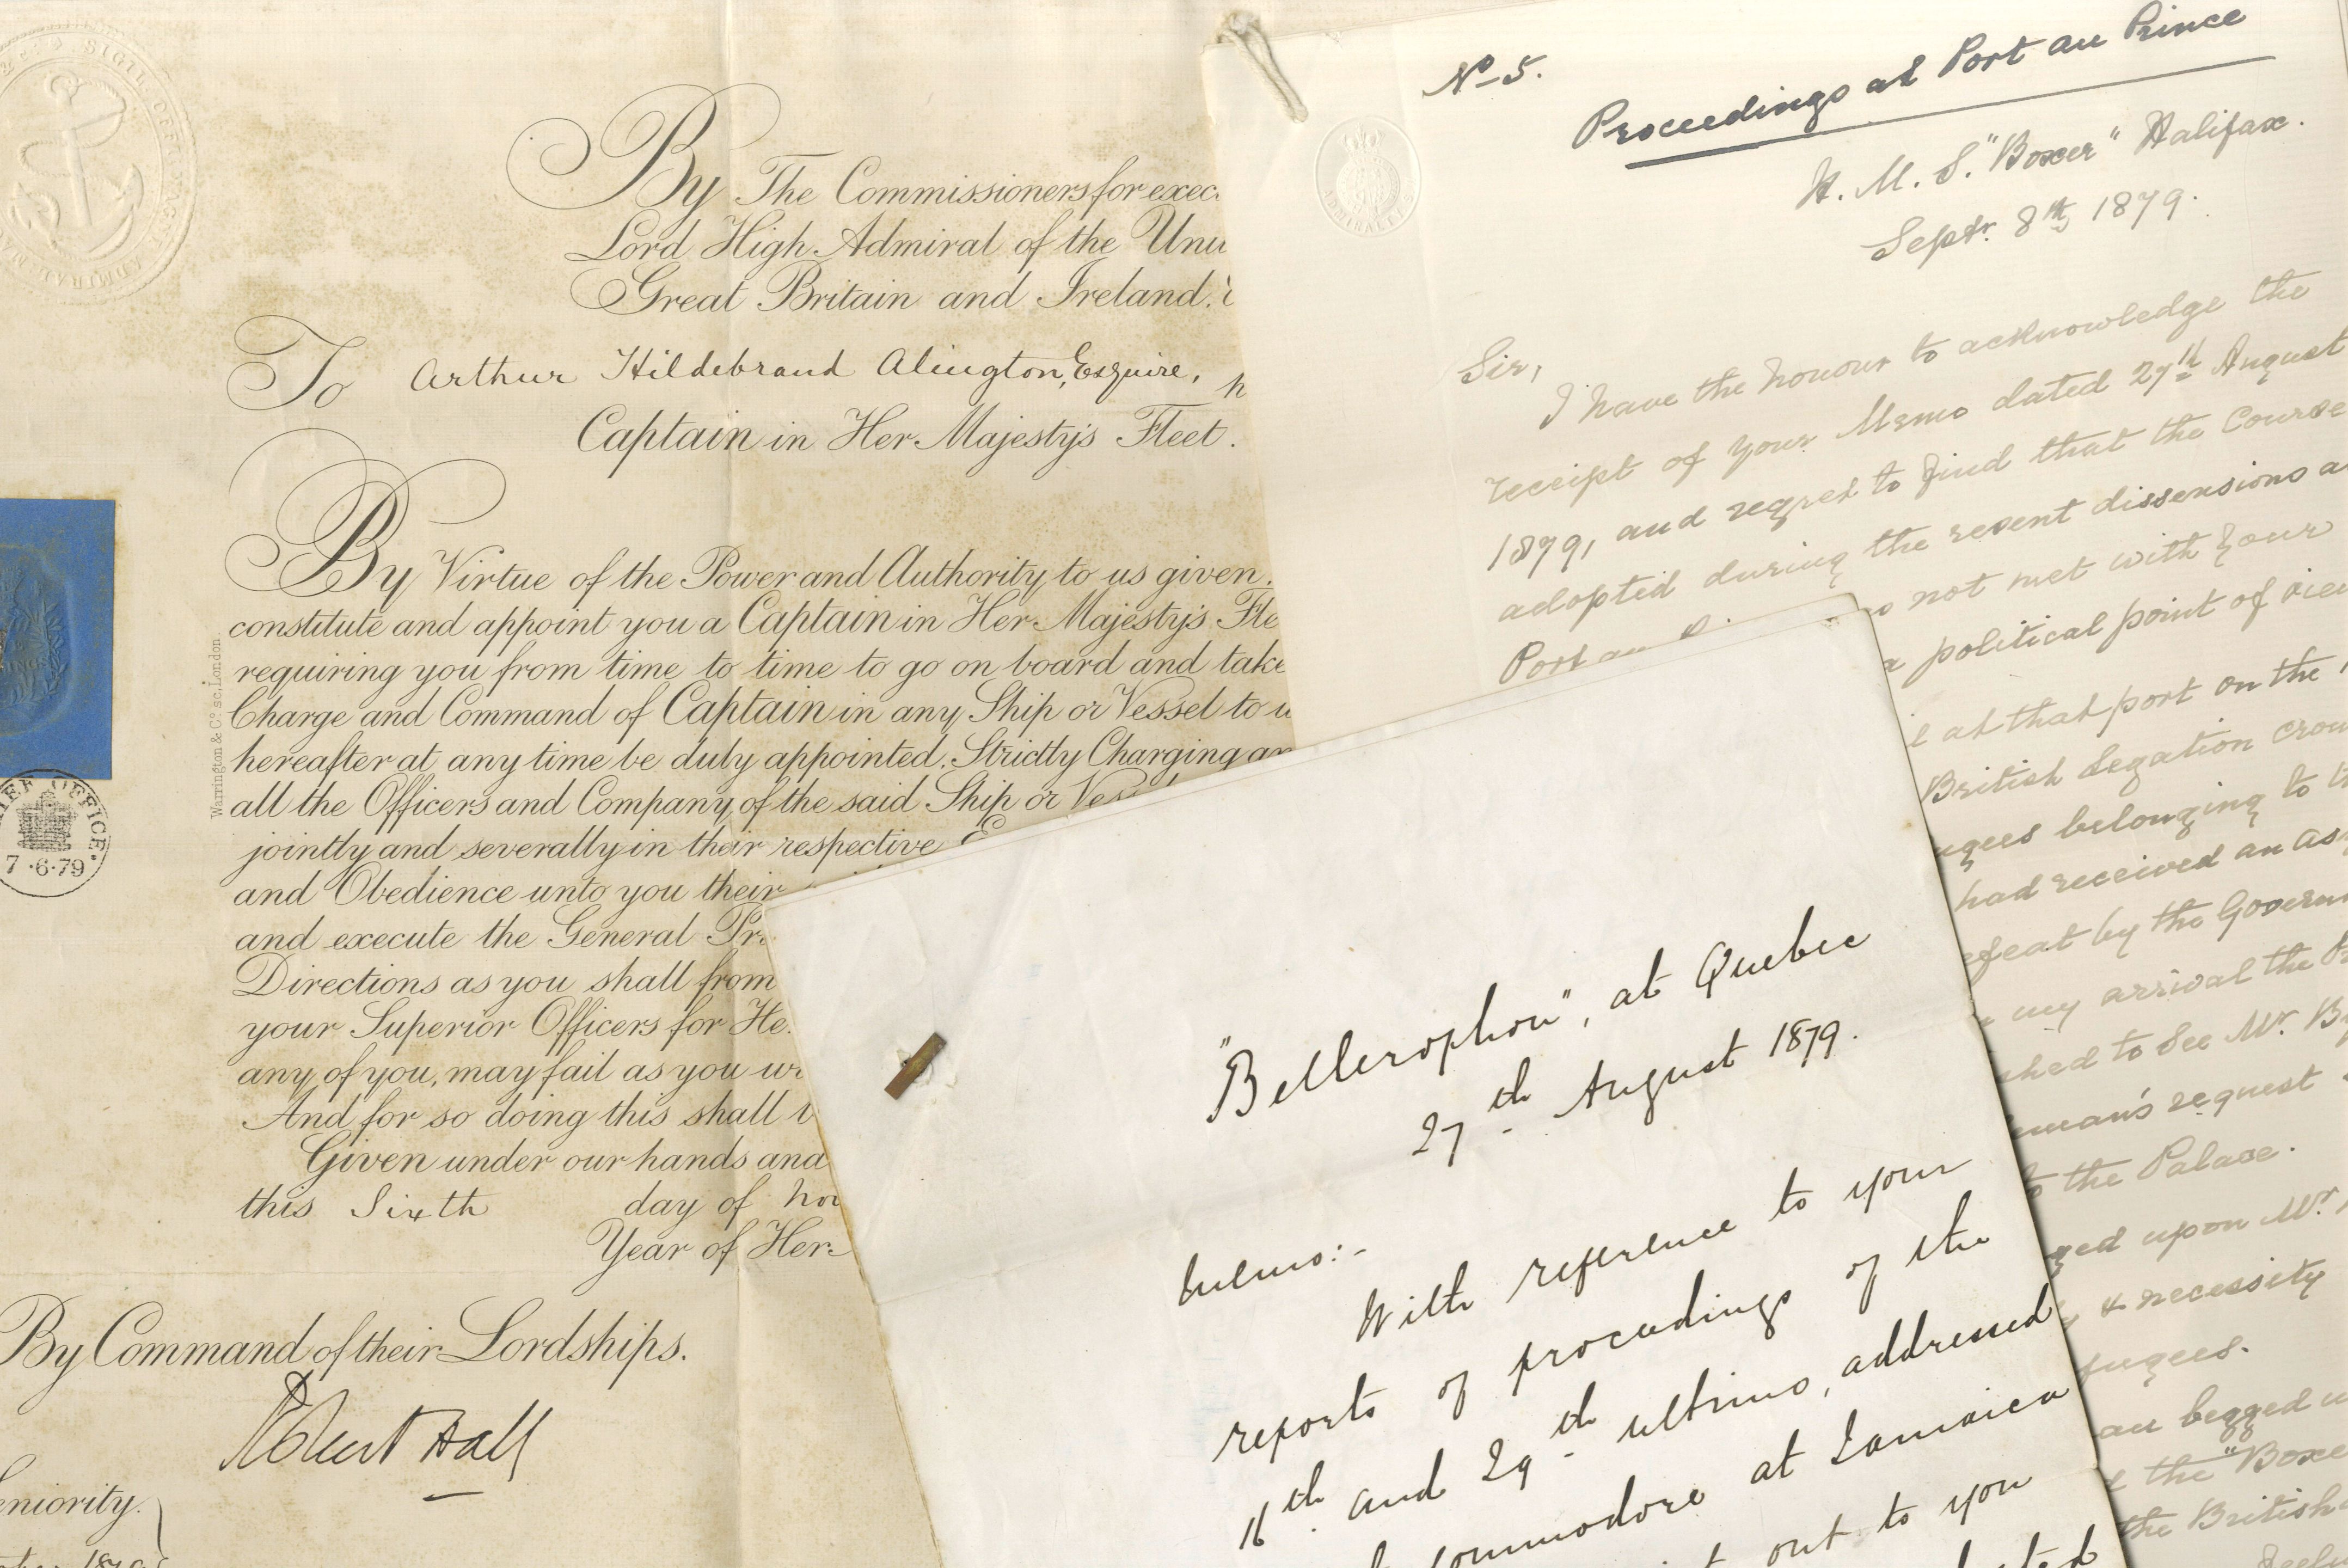 SIGIL: OFFIC
By The Commissioners for exec
Lord High Admiral of the
Great Britain and Ireland.
To Arthur Hildebrand Alington, Esquire,
Captain in Her Majesty's Fleet.
By Virtue of the Power and Authority to us given
constitute and appoint you a Captain in Her Majesty's Fle
requiring you from time to time to go on board and take
Charge and Command of Captain in any Ship or Vessel to
hereafter at any time be duly appointed. Strictly Charging an
all the Officers and Company of the said Ship or
jointly and severally in their respective
and Obedience unto you their
and execute the General
Directions as you shall from
your Superior Officers for He
any of you, may fail as you
And for so doing this shall
Given under our hands and
this Sixth day of nov
Year of Her
By Command of their Lordships.
Robert Hall
eniority.
Warrington & Co. sc. London
OFFICE.
7.6.79
No 5.
Proceedings at Port au Prince
H.M.S. "Boxer" Halifax.
Septr. 8th, 1879.
ADMIRALTY
Sir,
I have the honour to acknowledge the
receipt of your Memo dated 27th August
1879, and regret to find that the course
adopted during the recent dissensions a
Port au not met with your
political point of vie
at that port on the
British Legation crow
ugees belonging to
had received an as
efeat by the Govern
my arrival the
shed to see Mr. B
eman's request
to the Palace.
ged upon Mr.
& necessity
fugees.
au begged
the "Boxe
the British
"Bellerophon", at Quebec
27th August 1879.
Memo:-
With reference to your
reports of proceedings of the
16th and 29th ultimo, addressed
commodore at Jamaica
out to you